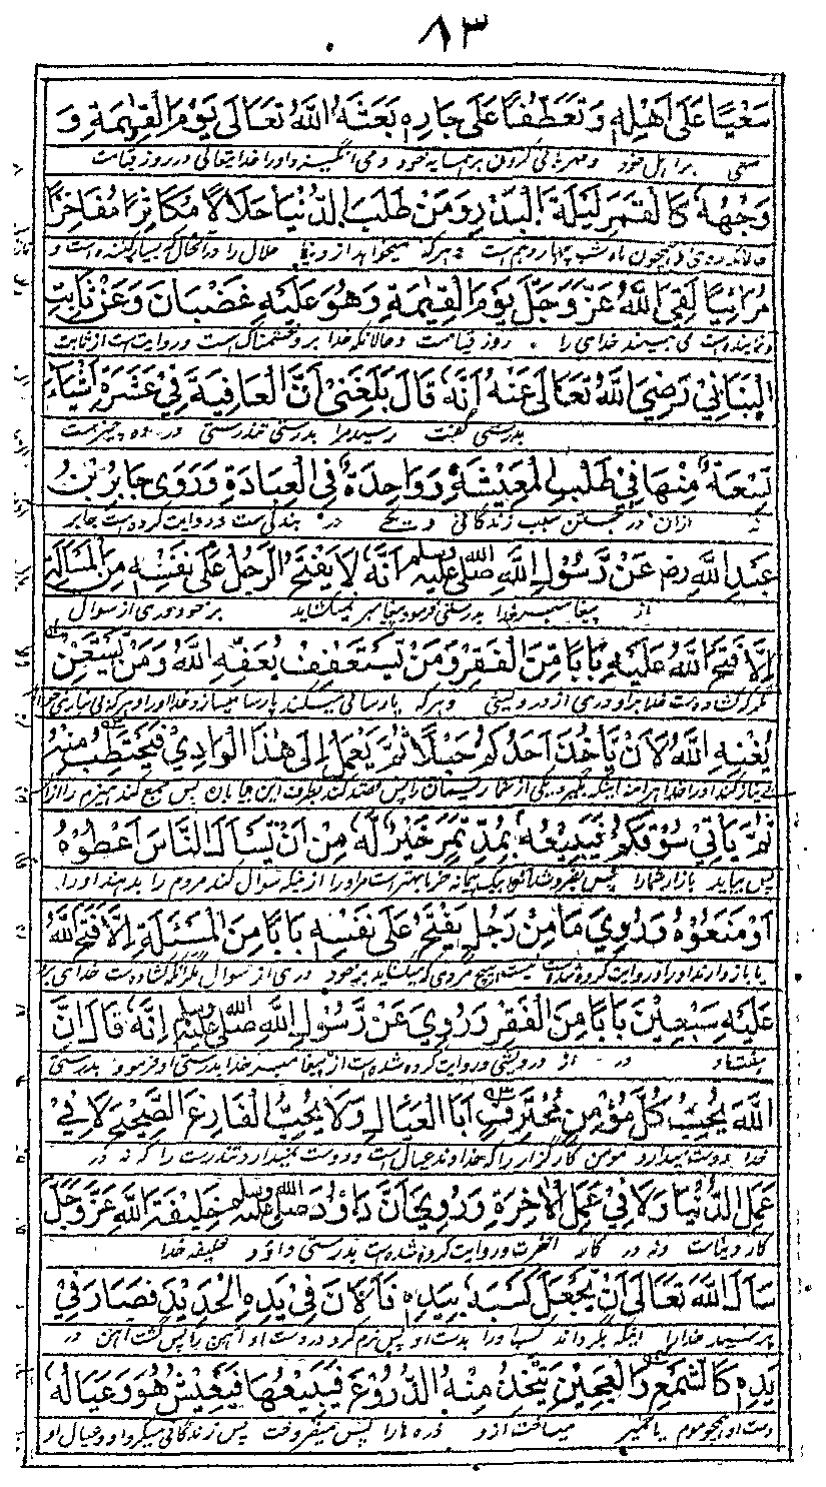 ٨٣
سَعْيًا عَلَى اَهْلِهٖ وَتَعَطُّفًا عَلَى جَارِهٖ بَعَثَهُ اللّٰهُ تَعَالَى يَوْمَ الْقِيٰمَةِ وَ
سعی برا اهل خود و مهربانی کردن بر همسایه خود و می انگیزد او را خدایتعالی در روز قیامت
وَجْهُهٗ كَالْقَمَرِ لَيْلَةَ الْبَدْرِ وَمَنْ طَلَبَ الدُّنْيَا حَلَالًا مُكَاثِرًا مُفَاخِرًا
همچون ماه شب چهاردهم است و هرکه میخواهد از دنیا حلال را در آنحال که بسیار کننده است و
مُرَائِيًا لَقِيَ اللّٰهَ عَزَّ وَجَلَّ يَوْمَ الْقِيٰمَةِ وَهُوَ عَلَيْهِ غَضْبَانَ وَعَنْ ثَابِتِ
و نماینده است می بیند خدای را روز قیامت و حالانکه خدا بر و خشمناک است و روایت است از ثابت
الْبُنَانِيْ رَضِيَ اللّٰهُ تَعَالَى عَنْهُ اَنَّهٗ قَالَ بَلَغَنِيْ اَنَّ الْعَافِيَةَ فِيْ عَشَرَةِ اَشْيَآءَ
بدرستی گفت رسید مرا بدرستی تندرستی در ده چیز است
تِسْعَةٌ مِنْهَا فِيْ طَلَبِ الْمَعِيْشَةِ وَوَاحِدَةٌ فِي الْعِبَادَةِ وَرَوَى جَابِرُ بْنُ
نه ازان در جستن سبب زندگانی و یکی در بندگی ست و روایت کرده است جابر
عَبْدِ اللّٰهِ رض عَنْ رَّسُوْلِ اللّٰهِ صلى الله عليه وسلم اَنَّهٗ لَا يَفْتَحُ الرَّجُلُ عَلَى نَفْسِهٖ مِنَ الْمَسْاَلَةِ
از پیغامبر خدا بدرستی فرمود پیغامبر نمیکشاید بر خود دری از سوال
اِلَّا فَتَحَ اللّٰهُ عَلَيْهِ بَابًا مِّنَ الْفَقْرِ وَمَنْ يَسْتَعْفِفْ يُعِفَّهُ اللّٰهُ وَمَنْ يَسْتَغْنِ
مگر کشاده است خدا بر او دری از درویشی و هرکه پارسائی میکند پارسا میسازد خدا او را و هرکه بی نیازی
يُغْنِهِ اللّٰهُ لَاَنْ يَّاْخُذَ اَحَدُكُمْ حَبْلًا ثُمَّ يَعْمِلَ اِلَى هٰذَا الْوَادِيْ فَيَحْتَطِبُ مِنْهُ
بی نیاز کند او را خدا هر آئنه اینکه بگیرد یکی از شما ریسمان را پس قصد کند بطرف این بیابان پس جمع کند هیزم را ازان
ثُمَّ يَاْتِيْ سُوْقَكُمْ فَيَبِيْعُهٗ بِمُدِّ تَمْرٍ خَيْرٌ لَّهٗ مِنْ اَنْ يَّسْاَلَ النَّاسَ اَعْطَوْهُ
پس بیاید بازار شما را پس بفروشد آنرا بیک پیمانه خرما بهتر است مر او را از اینکه سوال کند مردم را بدهند او را
اَوْ مَنَعُوْهُ وَرُوِيَ مَا مِنْ رَجُلٍ يَفْتَحُ عَلَى نَفْسِهٖ بَابًا مِنَ الْمَسْئَلَةِ اِلَّا فَتَحَ اللّٰهُ
یا باز دارند او را و روایت کرده شده است نیست هیچ مردی که میکشاید بر خود دری از سوال مگر آنکه کشاده است خدای بر
عَلَيْهِ سَبْعِيْنَ بَابًا مِنَ الْفَقْرِ وَرُوِيَ عَنْ رَّسُوْلِ اللّٰهِ صلى الله عليه وسلم اِنَّهٗ قَالَ اِنَّ
هفتاد در از درویشی و روایت کرده شده است از پیغامبر خدا بدرستی او فرموده بدرستی
اللّٰهَ يُحِبُّ كُلَّ مُؤْمِنٍ مُحْتَرِفٍ اَبَا الْعِيَالِ وَلَا يُحِبُّ الْفَارِغَ الصَّحِيْحَ لَا فِيْ
خدا دوست میدارد مومن کارگزار را که خداوند عیال است و دوست نمیدارد تندرست را که نه در
عَمَلِ الدُّنْيَا وَلَا فِيْ عَمَلِ الْاٰخِرَةِ وَرُوِيَ اَنَّ دَاوٗدَ صلى الله عليه وسلم خَلِيْفَةَ اللّٰهِ عَزَّ وَجَلَّ
کار دنیاست ونه در کار آخرت و روایت کرده شده است بدرستی داؤد خلیفه خدا
سَاَلَ اللّٰهَ تَعَالَى اَنْ يَّجْعَلَ كَسْبَهٗ بِيَدِهٖ فَاَلَانَ فِيْ يَدِهِ الْحَدِيْدَ فَصَارَ فِيْ
پرسید خدا را اینکه بگرداند کسب او را بدست او پس نرم کرد در دست او آهن را پس گشت آهن در
يَدِهٖ كَالشَّمْعِ وَالْعَجِيْنِ يَتَّخِذُ مِنْهُ الدُّرُوْعَ فَيَبِيْعُهَا فَيَعِيْشُ هُوَ وَعِيَالُهٗ
دست او همچو موم یا خمیر میساخت ازو زره ها را پس میفروخت پس زندگانی میکرد او و عیال او